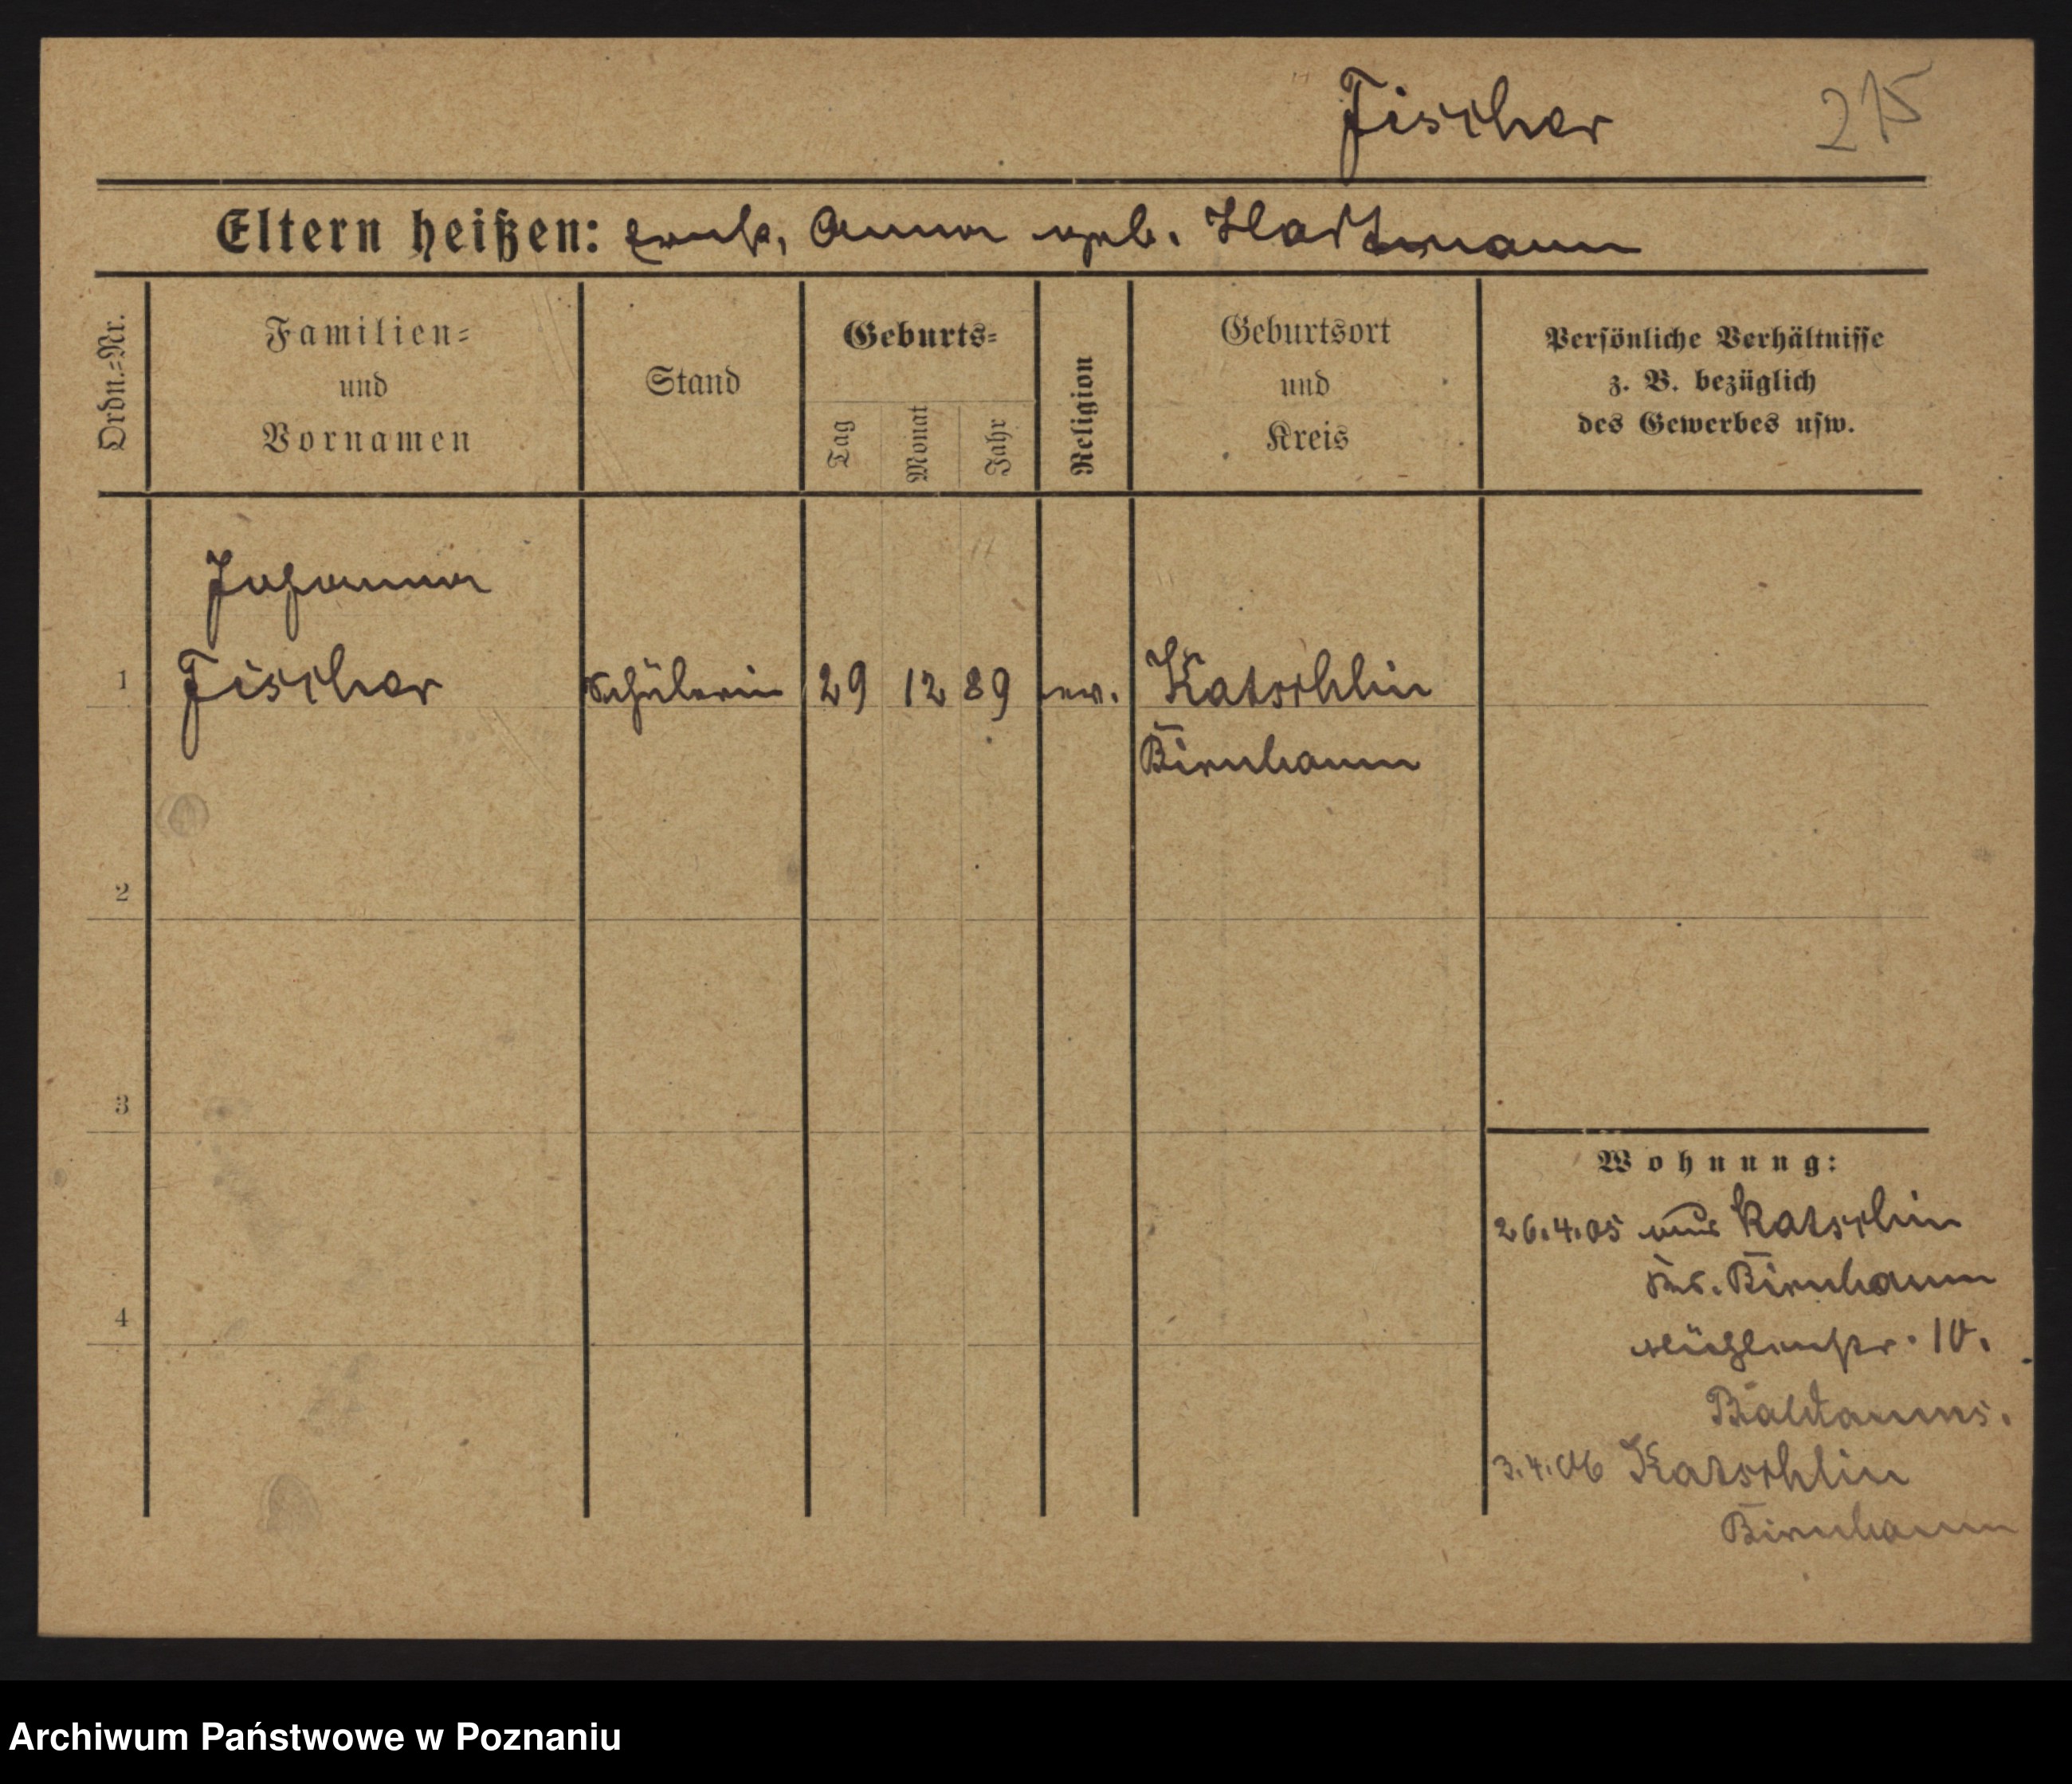 Fischer 215
Eltern heißen: Ernst, Anna geb. Hartmann
Ordn.=Nr.
Familien=
und
Vornamen
Stand
Geburts=
Tag
Monat
Jahr
Religion
Geburtsort
und
Kreis
Persönliche Verhältnisse
z. B. bezüglich
des Gewerbes usw.
Johanna
1 Fischer Schülerin 29 12 89 ev. Katschlin
Birnbaum
2
3
4
Wohnung:
26.4.05 aus Katschlin
Birnbaum
Mühlenstr. 10.
3.4.06 Katschlin
Birnbaum
Archiwum Państwowe w Poznaniu